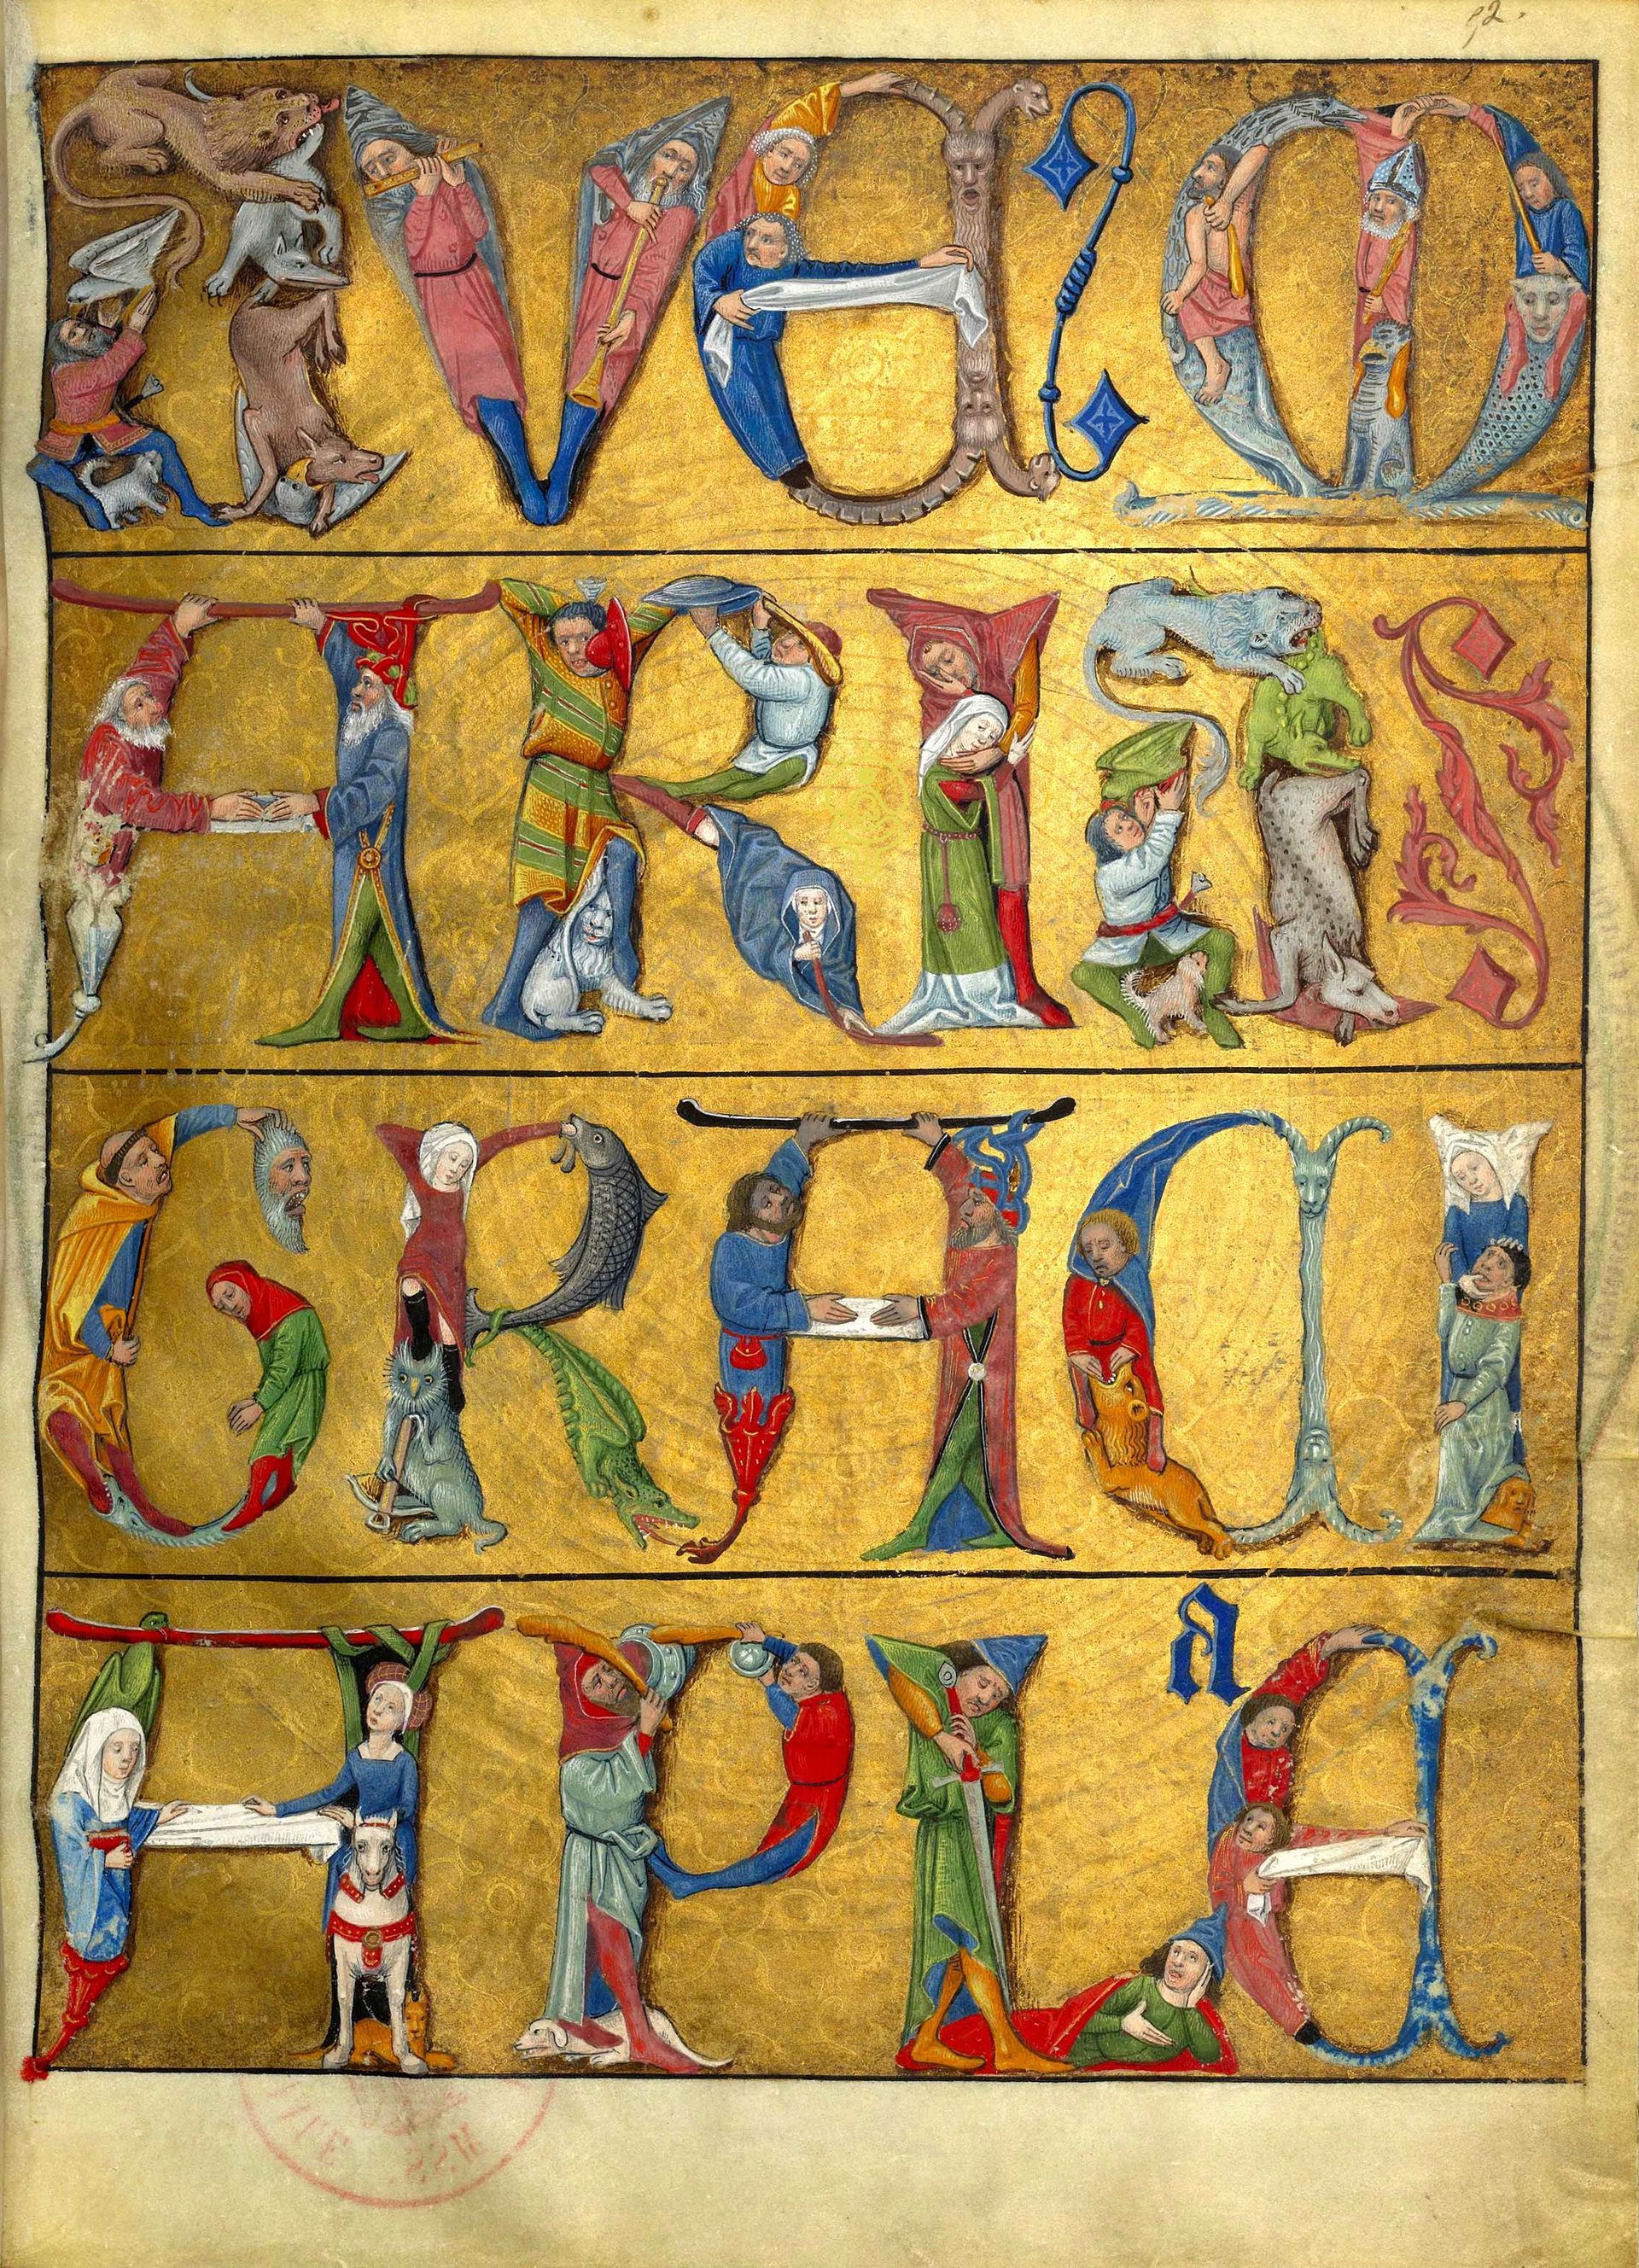 52.
AVE M
ARIA
GRACI
A PLE ᵃ